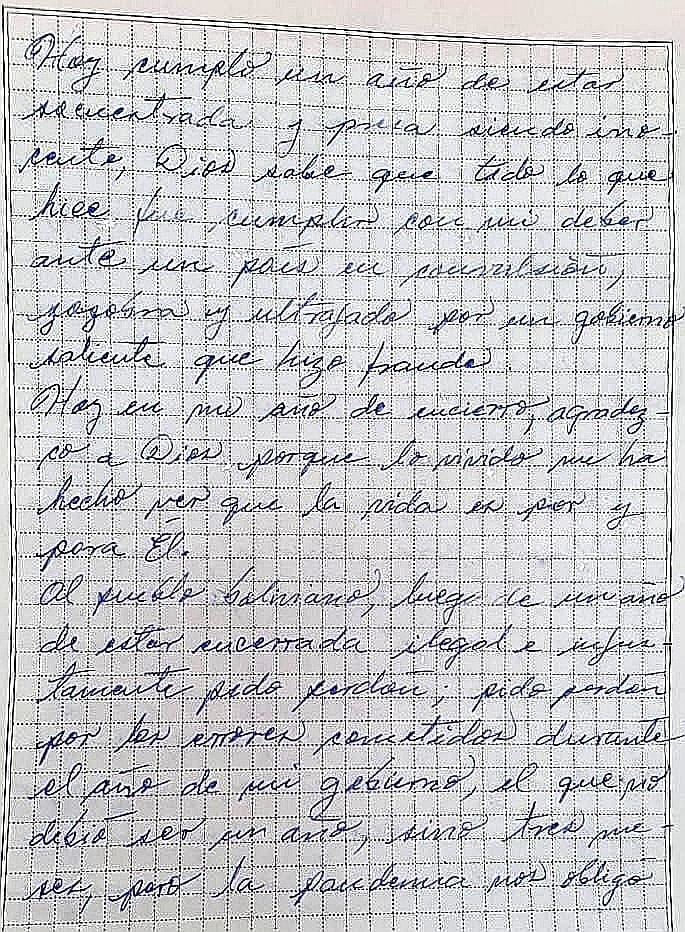 Hoy cumplo un año de estar
secuestrada y presa siendo ino-
cente, Dios sabe que todo lo que
hice fue, cumplir con mi deber
ante un país en convulsión,
zozobra y ultrajado por un gobierno
saliente que hizo fraude.
Hoy en mi año de encierro, agradez-
co a Dios porque lo vivido me ha
hecho ver que la vida es por y
para Él.
Al pueblo boliviano, luego de un año
de estar encerrada ilegal e injus-
tamente pido perdón; pido perdón
por los errores cometidos durante
el año de mi gobierno, el que no
debió ser un año, sino tres me-
ses, pero la pandemia nos obligó